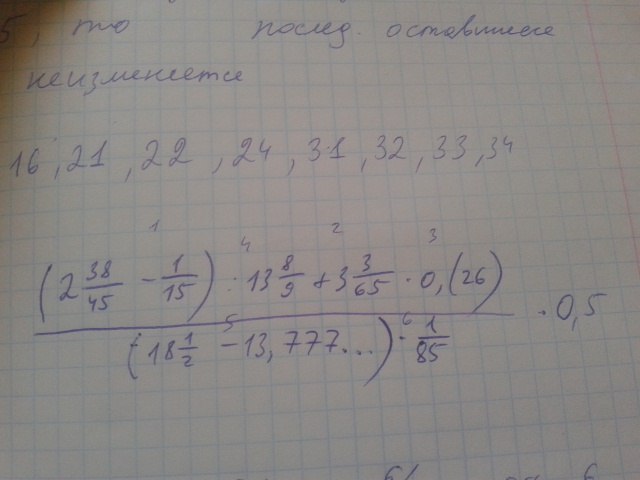 5, то послед. оставшееся
неизменяется
16, 21, 22, 24, 31, 32, 33, 34
1 4 2 3
(2 38/45 - 1/15) : 13 8/9 + 3 3/65 · 0,(26)
5 6
(18 1/2 - 13,777...) · 1/85
· 0,5